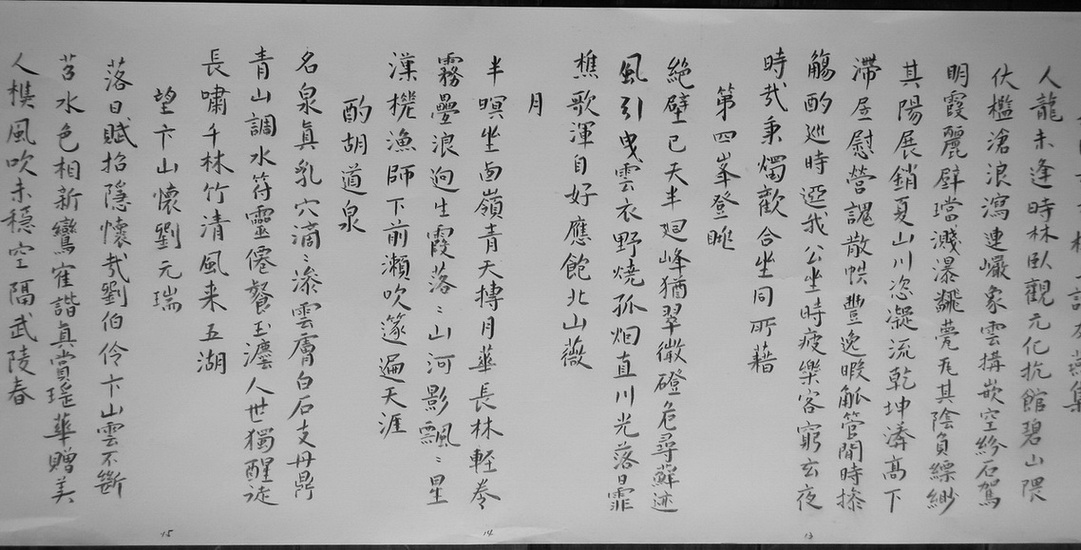 人龍未逢時林臥觀元化抗館碧山隈
伏檻滄浪瀉連巘象雲搆嵌空紛石駕
明霞麗壁璫濺瀑飜甍瓦其陰負縹緲
其陽展銷夏山川恣凝流乾坤溝高下
滯居慰營讙散帙豐逸暇觚管閒時摻
觴酌巡時迓我公坐時疲樂客窮玄夜
時哉秉燭歡合坐同所藉
第四峯登眺
絕壁已天半廻峰猶翠微磴危尋蘚迹
風引曳雲衣野燒孤烟直川光落日霏
樵歌渾自好應飽北山薇
月
半暝坐函嶺青天摶月華長林輕卷
霧疊浪迥生霞落〻山河影飄〻星
漢槎漁師下前瀨吹篴遍天涯
酌胡道泉
名泉真乳穴滴〻滲雲膚白石支丹鼎
青山調水符靈僊餐玉瀣人世獨醒徒
長嘯千林竹清風来五湖
望卞山懷劉元瑞
落日賦招隱懷哉劉伯伶卞山雲不斷
苕水色相新鸞寉諧真賞瑤華贈美
人樵風吹未穩空隔武陵春
13
14
15